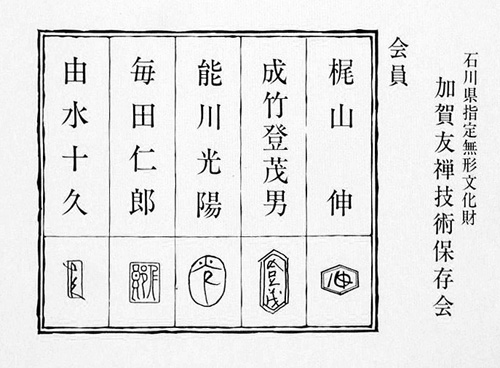 石川県指定無形文化財
加賀友禅技術保存会
会員
梶山 伸
成竹登茂男
能川光陽
毎田仁郎
由水十久
伸
登茂